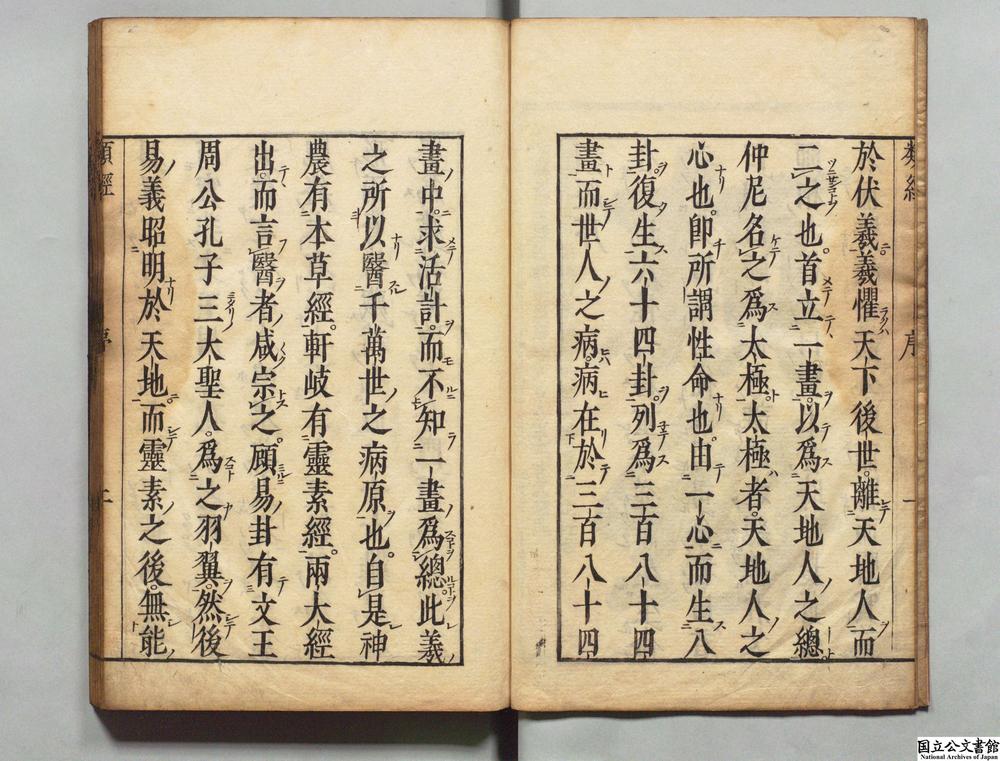 類經 序 一
於伏羲羲懼天下後世離天地人而
二之也首立一畫以爲天地人之總
仲尼名之爲太極太極者天地人之
心也即所謂性命也由一心而生八
卦復生六十四卦列爲三百八十四
畫而世人之病病在於三百八十四
畫中求活計而不知一畫爲總此羲
之所以醫千萬世之病原也自是神
農有本草經軒岐有靈素經兩大經
出而言醫者咸宗之顧易卦有文王
周公孔子三大聖人爲之羽翼然後
易義昭明於天地而靈素之後無能
類經 序 二
国立公文書館
National Archives of Japan